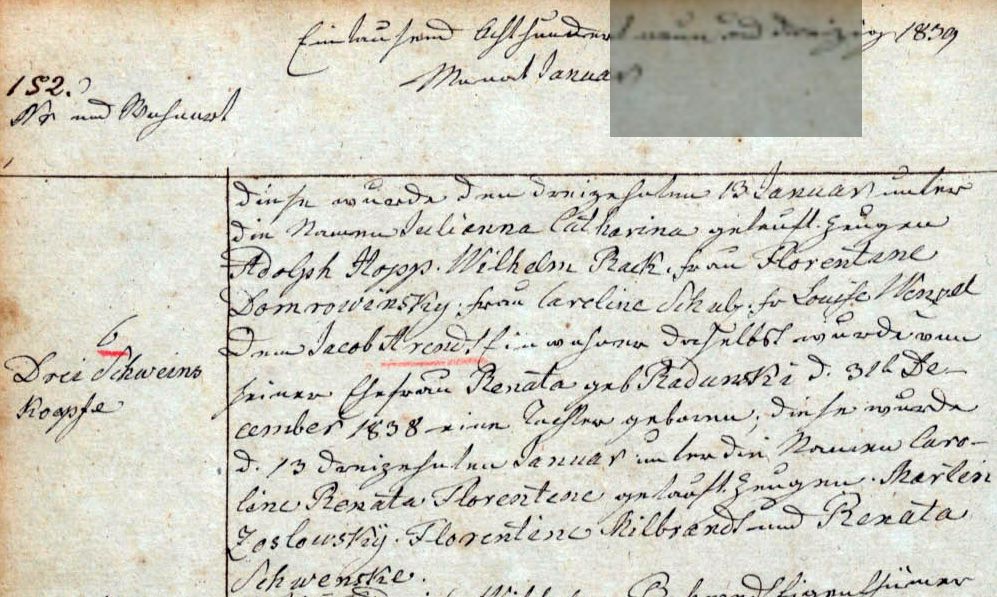 Eintausend Achthundert neun und dreizig 1839
Monat Januar
152.
Nr und Wohnort
diese wurde den dreizehnten 13 Januar unter
die Namen Julianna Catharina getauft. Zeugen
Adolph Hopp. Wilhelm Rack. frau Florentine
Domrowinsky. frau Careline Schulz. fr Louise Wenzel
6
Drei Schweins
Koepfe
Dem Jacob Arend. Einwohner daselbst wurde von
seiner Ehefrau Renata geb Radunski d. 31t De-
cember 1838 eine Tochter geboren, diese wurde
d. 13 dreizehnten Januar unter die Namen Caro-
line Renata Florentine getauft. Zeugen. Martin
Zoslowsky. Florentine Milbrandt und Renata
Schwenske.